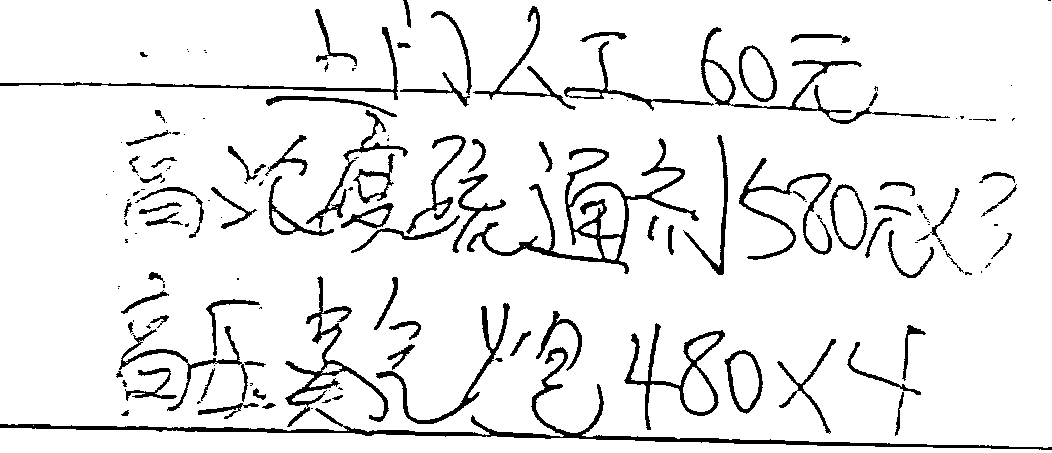 上门人工 60元
高浓度疏通剂580元×3
高压蒸气炮480×4